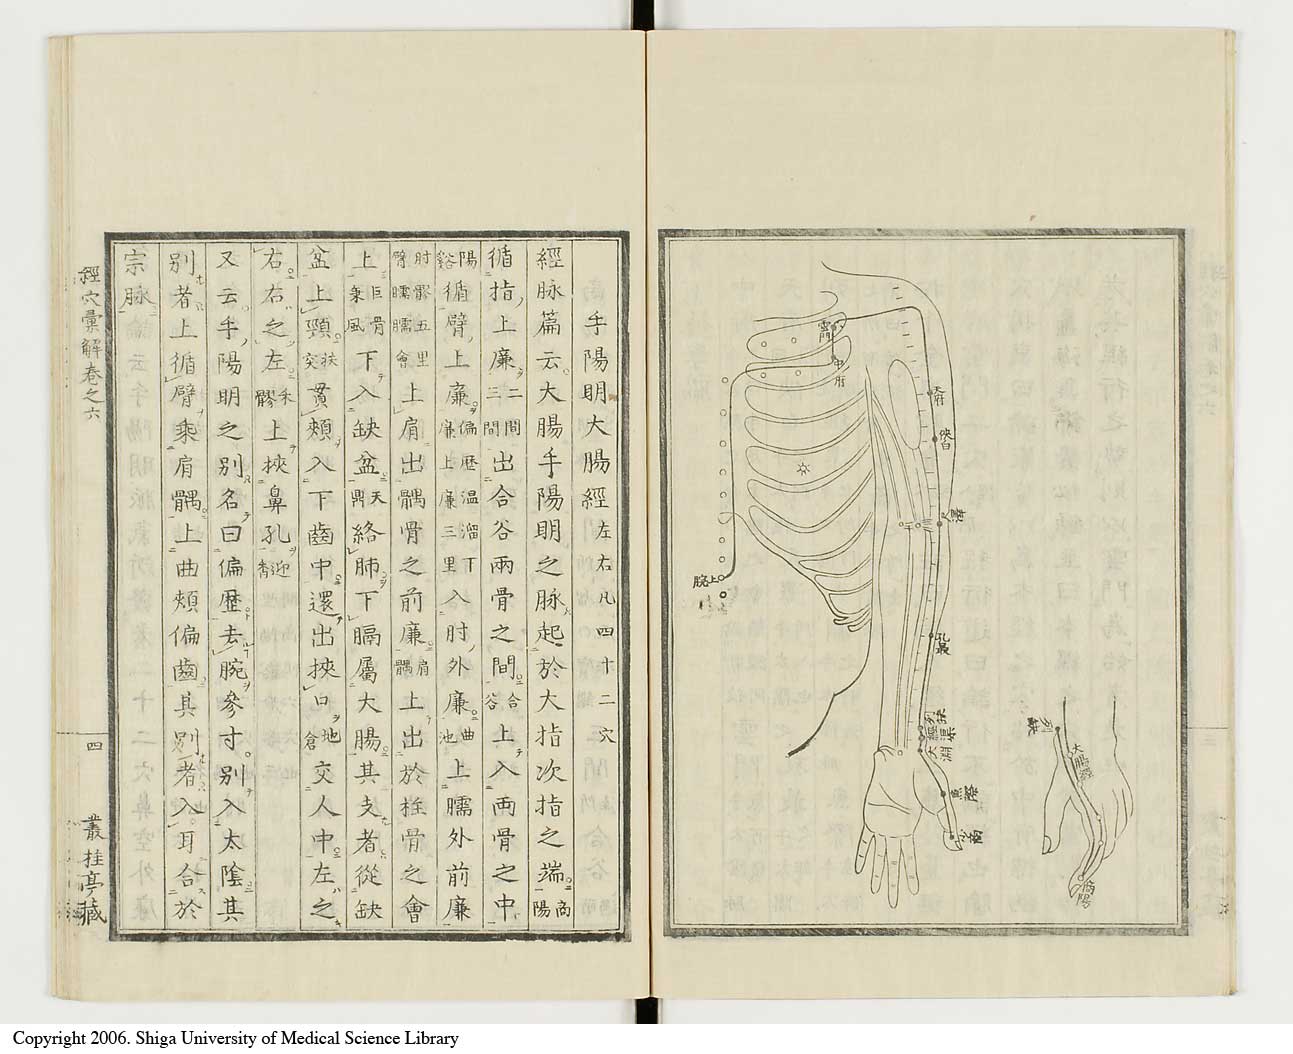 雲門
中府
天府
俠白
尺澤
孔最
列缺
經渠
太渊
魚際
少商
上腕
列缺
大腸經
商陽
手陽明大腸經左右凡四十二穴
經脉篇云大腸手陽明之脉起於大指次指之端商陽
循指上廉二間三間出合谷兩骨之間合谷上入两骨之中
陽谿循臂上廉偏歴温溜下廉上廉三里入肘外廉曲池上臑外前廉
肘髎五里臂臑臑會上肩出髃骨之前廉肩髃上出於柱骨之會
上巨骨秉風下入缺盆天鼎絡肺下膈屬大腸其支者從缺
盆上頸扶突貫頰入下齒中還出挾口地倉交人中左之
右右之左禾髎上挾鼻孔迎香
又云手陽明之別名曰偏歷去腕參寸別入太陰其
別者上循臂乗肩髃上曲頰偏齒其別者入耳合於
宗脉
經穴彙解卷之六
四
叢桂亭藏
Copyright 2006. Shiga University of Medical Science Library